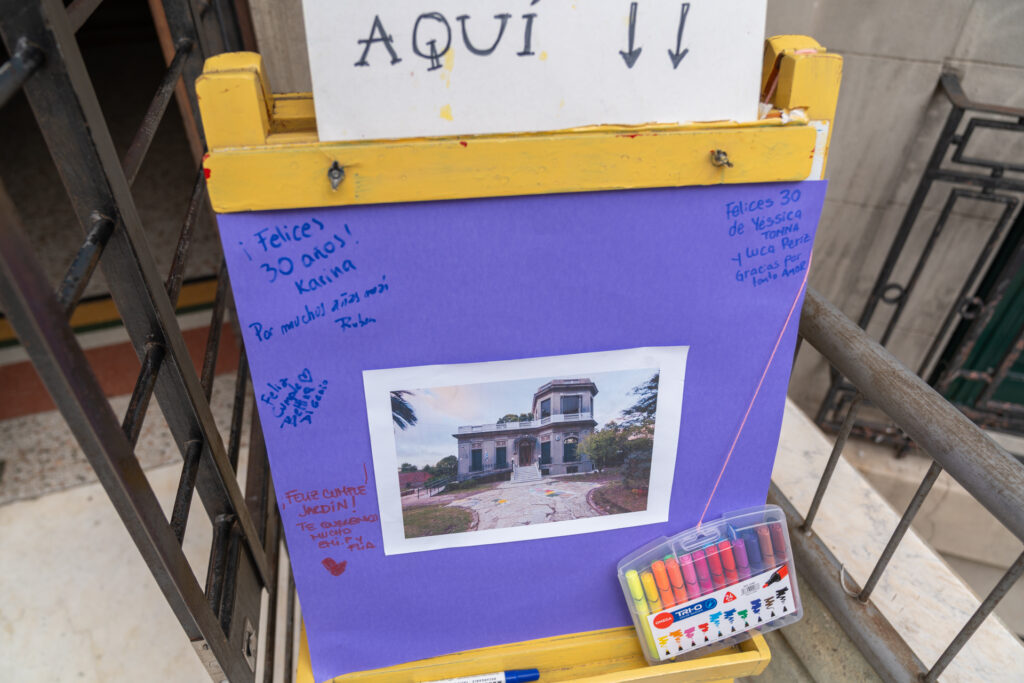 AQUÍ ↓↓
¡Felices
30 años!
Karina
Por muchos años más
Ruben
Felices 30
de Yessica
TOMNA
y Luca Periz
Gracias por
tanto AMOR
Feliz
Cumple
¡FELIZ CUMPLE
JARDÍN!
TE QUEREMOS
MUCHO
EMI. P Y
FLIA
OMEGA
TRI-O
24